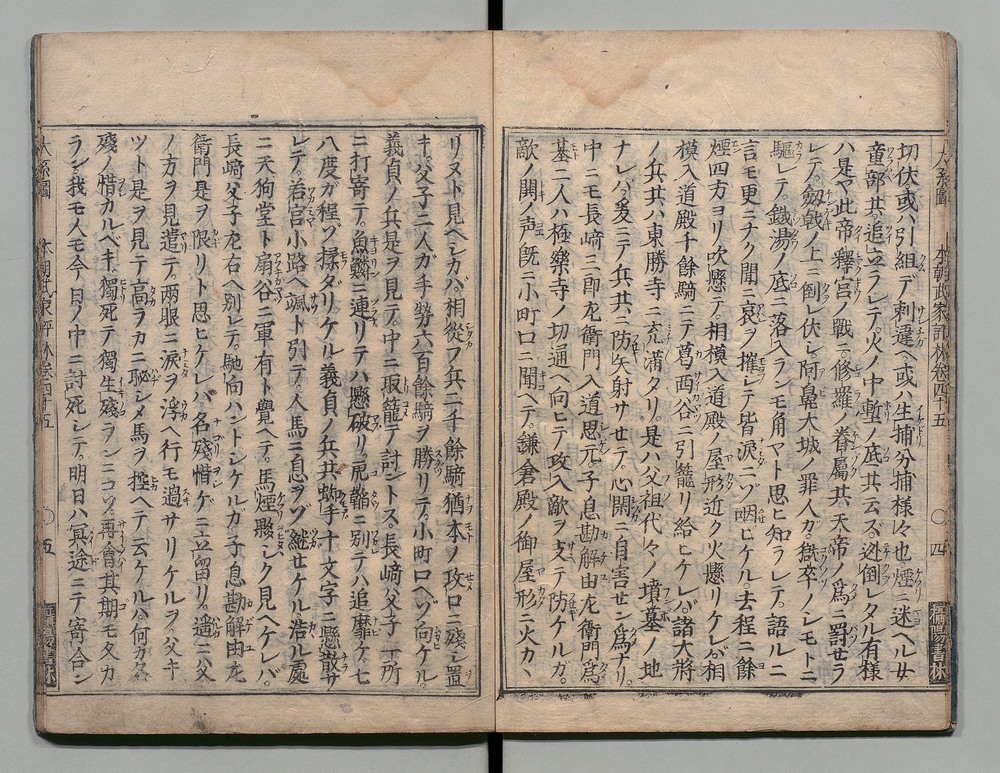 切伏或ハ引組ミテ刺違ヘ或ハ生捕分捕様々也煙ニ迷ヘル女
童部共追立ラレテ火ノ中塹ノ底共云ズ迯倒レタル有様
ハ是ヤ此帝釋宮ノ戰ニ修羅ノ眷屬共天帝ノ爲ニ罸セラ
レテ劔戟ノ上ニ倒レ伏シ阿鼻大城ノ罪人カ獄卒ノシモトニ
駆レテ鐵湯ノ底ニ落入ランモ角マト思ヒ知ラレテ語ルニ
言モ更ニナク聞ニ哀ヲ攉レテ皆涙ニゾ咽ヒケル去程ニ餘
煙四方ヨリ吹懸テ相模入道殿ノ屋形近ク火懸リケレバ相
模入道殿千餘騎ニテ葛西谷ニ引籠リ給ヒケレバ諸大將
ノ兵共ハ東勝寺ニ充滿タリ是ハ父祖代々ノ墳墓ノ地
ナレバ爰ニテ兵共ニ防矢射サセテ心閑ニ自害セン爲ナリ
中ニモ長﨑三郎左衛門入道思元子息勘解由左衛門爲
基二人ハ極樂寺ノ切通ヘ向ヒテ攻入敵ヲ支ヘテ防ケルガ
敵ノ鬨ノ声既ニ小町口ニ聞ヘテ鎌倉殿ノ御屋形ニ火カヽ
本朝武家評林卷四十五
四
リヌト見ヘシカバ相從フ兵二千餘騎猶本ノ攻口ニ殘シ置
キ父子二人ガ手勢六百餘騎ヲ勝リテ小町口ヘゾ向ケル
義貞ノ兵是ヲ見テ中ニ取籠テ討ントス長﨑父子一所
ニ打寄テハ魚鱗ニ連リテハ懸破リ虎韜ニ別テハ追靡ケ七
八度ガ程ゾ揉ダリケル義貞ノ兵共蜘手十文字ニ懸散サ
レテ若宮小路ヘ颯ト引テ人馬ニ息ヲゾ継セケル浩ル處
ニ天狗堂ト扇谷ニ軍有ト覺ヘテ馬煙夥シク見ヘケレバ
長﨑父子左右ヘ別レテ馳向ハントシケルガ子息勘解由左
衛門是ヲ限リト思ヒケレバ名殘惜ゲニ立留リ遥ニ父
ノ方ヲ見遣テ兩眼ニ涙ヲ浮ヘ行モ過サリケルヲ父キ
ツト是ヲ見テ高ラカニ恥シメ馬ヲ控ヘテ云ケルハ何カ名
殘ノ惜カルベキ獨死テ獨生殘ランニコソ再會其期モタカ
ラン我モ人モ今日ノ中ニ討死シテ明日ハ冥途ニテ寄合ン
大系圖
本朝武家評林卷四十五
五